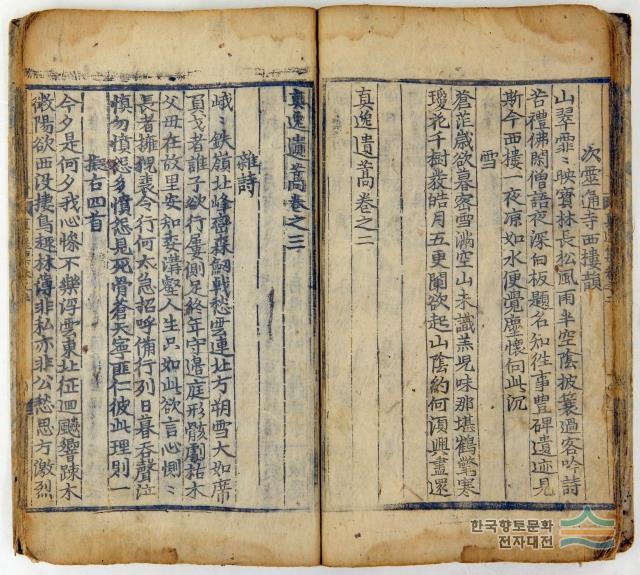 次靈通寺西樓韻
山翠霏〻映寶林長松風雨半空陰披簑過客吟詩
苦禮佛閑僧語夜深白板題名知徃事豊碑遺迹見
斯今西樓一夜凉如水便覺塵懷向此沉
雪
蒼茫歲欲暮密雪滿空山未識羔児味那堪鶴氅寒
瓊花千樹發皓月五更闌欲起山陰約何須興盡還
真逸遺藁卷之二
真逸遺藁卷之三
雜詩
峨〻鉄嶺北峰巒森劒戟愁雲連北方朔雪大如席
負戈者誰子欲行屢側足終年守邊庭形骸劇枯木
父母在故里安知委溝壑人生只如此欲言心惻〻
長者擁貂裘令行何太急招呼備行列日暮吞聲泣
慎勿憤怨多憤怨見死骨蒼天寧匪仁彼此理則一
擬古四首
今夕是何夕我心慘不樂浮雲東北征回飈響踈木
微陽欲西没捿鳥趍林薄非私亦非公愁思方激烈
한국향토문화
전자대전